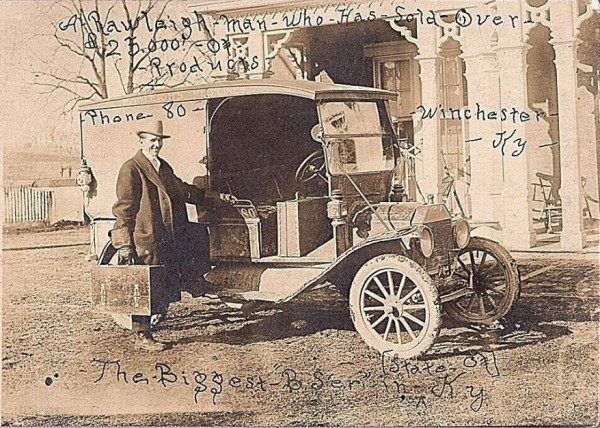 A-Rawleigh-man-Who-Has-Sold-Over
$25,000.-Of-
Products-
Phone-80-
Winchester-
-Ky-
[State-Of]
The-Biggest-"B.S er" in-Ky